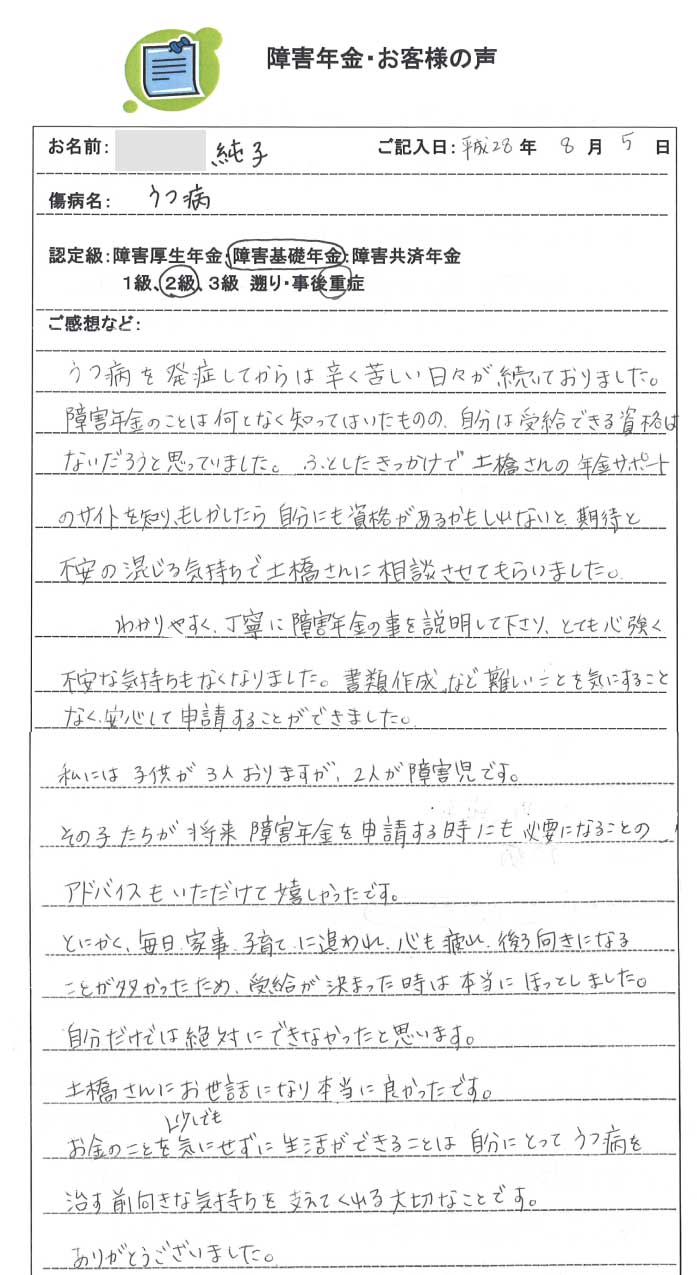 障害年金・お客様の声
お名前: 純子 ご記入日: 平成28 年 8 月 5 日
傷病名: うつ病
認定級:障害厚生年金・障害基礎年金・障害共済年金
1級、2級、3級 遡り・事後重症
ご感想など:
うつ病を発症してからは辛く苦しい日々が続いておりました。
障害年金のことは何となく知ってはいたものの、自分は受給できる資格は
ないだろうと思っていました。ふとしたきっかけで土橋さんの年金サポート
のサイトを知り、もしかしたら自分にも資格があるかもしれないと、期待と
不安の混じる気持ちで土橋さんに相談させてもらいました。
わかりやすく、丁寧に障害年金の事を説明して下さり、とても心強く
不安な気持ちもなくなりました。書類作成など難しいことを気にすること
なく、安心して申請することができました。
私には子供が3人おりますが、2人が障害児です。
その子たちが将来障害年金を申請する時にも必要になることの
アドバイスもいただけて嬉しかったです。
とにかく、毎日家事、子育てに追われ、心も疲れ、後ろ向きになる
ことが多かったため、受給が決まった時は本当にほっとしました。
自分だけでは絶対にできなかったと思います。
土橋さんにお世話になり本当に良かったです。
少しでも
お金のことを気にせずに生活ができることは自分にとってうつ病を
治す前向きな気持ちを支えてくれる大切なことです。
ありがとうございました。